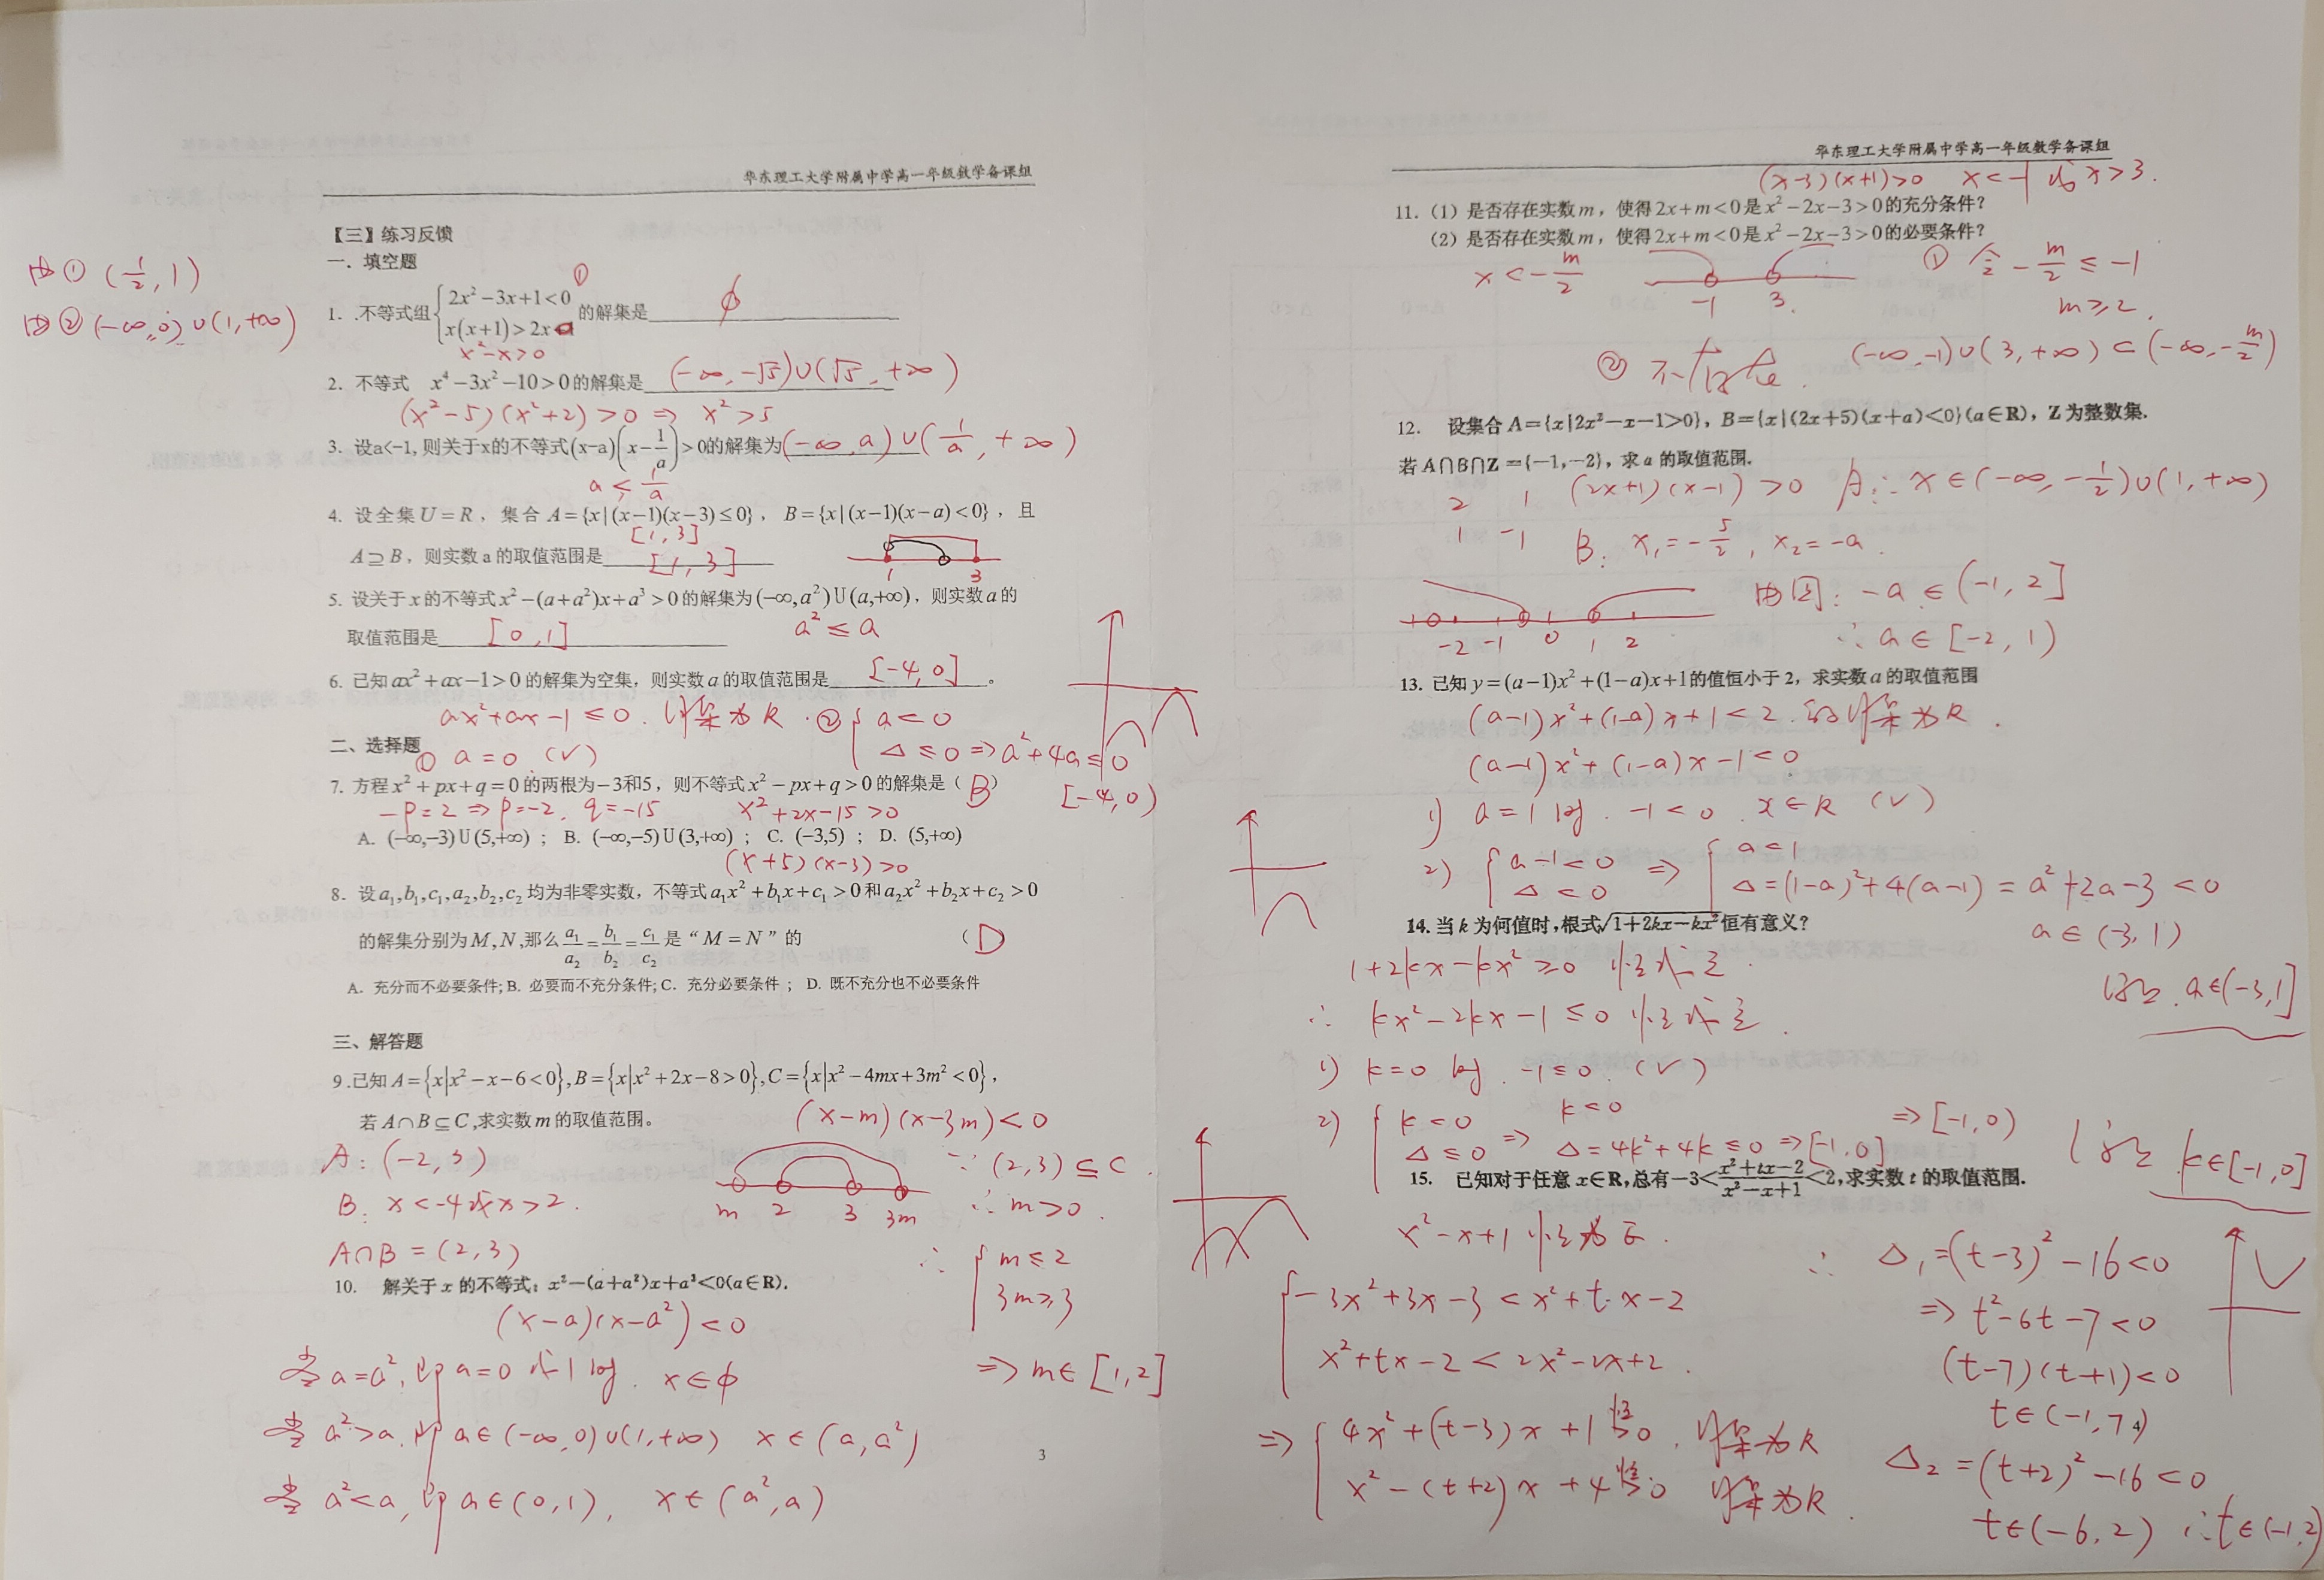 华东理工大学附属中学高一年级数学备课组
【三】练习反馈
一. 填空题
由① (1/2, 1)
由② (-∞, 0)∪(1, +∞)
1. 不等式组{2x²-3x+1<0 ① x(x+1)>2x 的解集是 ϕ
x²-x>0
2. 不等式 x⁴-3x²-10>0的解集是 (-∞, -√5)∪(√5, +∞)
(x²-5)(x²+2)>0 ⇒ x²>5
3. 设a<-1, 则关于x的不等式(x-a)(x-1/a)>0的解集为 (-∞, a)∪(1/a, +∞)
a < 1/a
4. 设全集U=R, 集合A={x|(x-1)(x-3)≤0}, B={x|(x-1)(x-a)<0}, 且
[1, 3]
A⊇B, 则实数a的取值范围是 [1, 3]
1 3
5. 设关于x的不等式x²-(a+a²)x+a³>0的解集为(-∞,a²)∪(a,+∞), 则实数a的
取值范围是 [0, 1] a²≤a
6. 已知ax²+ax-1>0的解集为空集, 则实数a的取值范围是 [-4, 0] 。
ax²+ax-1≤0. 解集为R. ② { a<0
二、选择题 ① a=0 (√) Δ≤0 ⇒ a²+4a≤0
7. 方程x²+px+q=0的两根为-3和5, 则不等式x²-px+q>0的解集是( B ) [-4, 0)
-p=2 ⇒ p=-2, q=-15 x²+2x-15>0
A. (-∞,-3)∪(5,+∞) ; B. (-∞,-5)∪(3,+∞) ; C. (-3,5) ; D. (5,+∞)
(x+5)(x-3)>0
8. 设a₁,b₁,c₁,a₂,b₂,c₂均为非零实数, 不等式a₁x²+b₁x+c₁>0和a₂x²+b₂x+c₂>0
的解集分别为M,N,那么a₁/a₂=b₁/b₂=c₁/c₂是“M=N”的 ( D
A. 充分而不必要条件; B. 必要而不充分条件; C. 充分必要条件 ; D. 既不充分也不必要条件
三、解答题
9.已知A={x|x²-x-6<0},B={x|x²+2x-8>0},C={x|x²-4mx+3m²<0},
若A∩B⊆C,求实数m的取值范围。 (x-m)(x-3m)<0
A: (-2, 3) ∵ (2,3)⊆C.
B: x<-4或x>2. m 2 3 3m ∴ m>0.
A∩B=(2,3) ∴ { m≤2
3m≥3
10. 解关于x的不等式: x²-(a+a²)x+a³<0(a∈R).
(x-a)(x-a²)<0
当a=a², 即a=0或1时. x∈ϕ ⇒ m∈[1,2]
当a²>a, 即a∈(-∞,0)∪(1,+∞) x∈(a,a²)
当a²<a, 即a∈(0,1), x∈(a²,a)
3
华东理工大学附属中学高一年级数学备课组
(x-3)(x+1)>0 x<-1或x>3.
11. (1) 是否存在实数m, 使得2x+m<0是x²-2x-3>0的充分条件?
(2) 是否存在实数m, 使得2x+m<0是x²-2x-3>0的必要条件?
x<-m/2 -1 3. ① 令-m/2≤-1
m≥2.
② 不存在. (-∞,-1)∪(3,+∞)⊂(-∞,-m/2)
12. 设集合A={x|2x²-x-1>0}, B={x|(2x+5)(x+a)<0}(a∈R), Z为整数集.
若A∩B∩Z={-1,-2}, 求a的取值范围.
2 1 (2x+1)(x-1)>0 A: x∈(-∞,-1/2)∪(1,+∞)
1 -1 B: x₁=-5/2, x₂=-a.
-2 -1 0 1 2 由图: -a∈(-1, 2]
∴ a∈[-2, 1)
13. 已知y=(a-1)x²+(1-a)x+1的值恒小于2, 求实数a的取值范围
(a-1)x²+(1-a)x+1<2. 的解集为R.
(a-1)x²+(1-a)x-1<0
1) a=1时. -1<0. x∈R (√)
2) { a-1<0 Δ<0 ⇒ { a<1 Δ=(1-a)²+4(a-1)=a²+2a-3<0
a∈(-3,1)
综上. a∈(-3,1]
14. 当k为何值时,根式√1+2kx-kx²恒有意义?
1+2kx-kx²≥0 恒成立.
∴ kx²-2kx-1≤0 恒成立.
1) k=0时. -1≤0. (√)
2) { k<0 Δ≤0 ⇒ k<0 Δ=4k²+4k≤0 ⇒[-1,0] ⇒[-1,0)
综上 k∈[-1,0]
15. 已知对于任意x∈R,总有-3<(x²+tx-2)/(x²-x+1)<2,求实数t的取值范围.
x²-x+1恒为正.
{ -3x²+3x-3<x²+t·x-2
x²+tx-2<2x²-2x+2.
⇒ { 4x²+(t-3)x+1恒>0. 解集为R
x²-(t+2)x+4恒>0 解集为R.
∴ Δ₁=(t-3)²-16<0
⇒ t²-6t-7<0
(t-7)(t+1)<0
t∈(-1,7)
4
Δ₂=(t+2)²-16<0
t∈(-6,2) ∴t∈(-1,2)